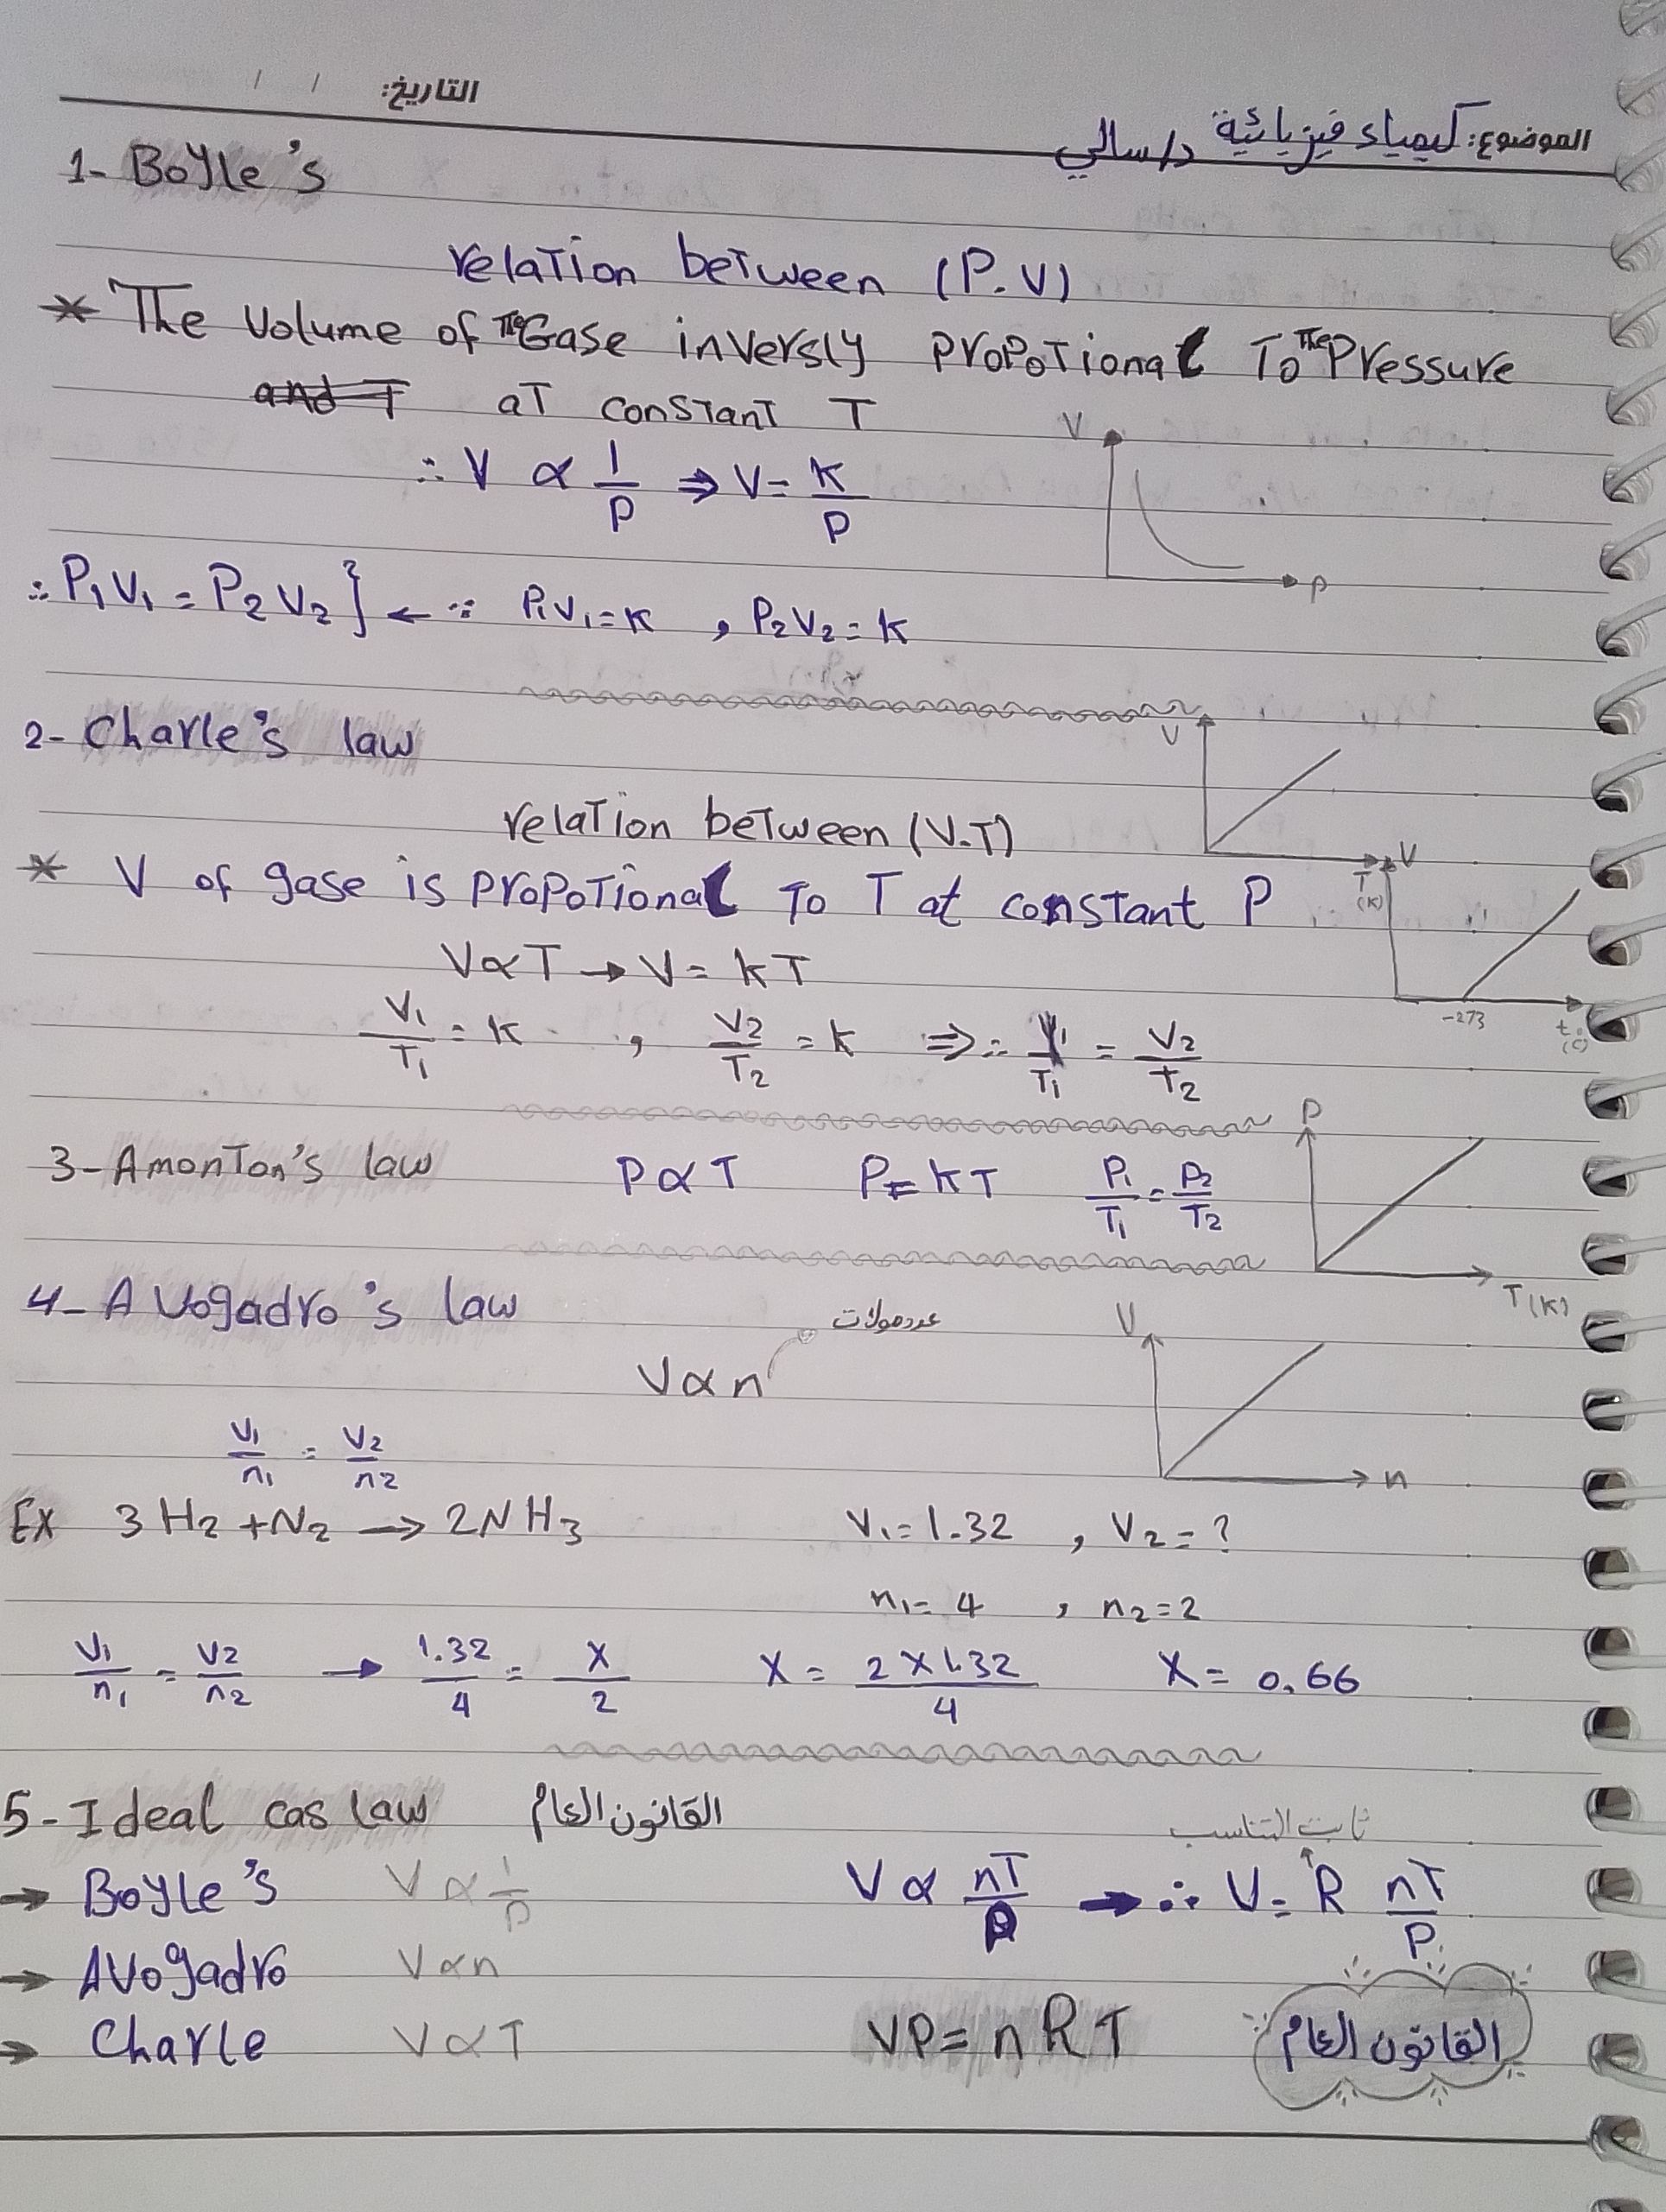 التاريخ: / /
الموضوع: كيمياء فيزيائية د/سالي
1- Boyle's
relation between (P.V)
* The Volume of The Gase inversly propotional To The Pressure
and T at constant T
V
∴ V ∝ 1/P ⇒ V = K/P
P
∴ P₁V₁ = P₂V₂ } ← ∵ P₁V₁ = K , P₂V₂ = K
2- Charle's law
V
relation between (V-T)
T (K)
V
* V of gase is propotional To T at constant P
V∝T → V = KT
-273
t. (C)
V₁/T₁ = K , V₂/T₂ = K ⇒ ∴ V₁/T₁ = V₂/T₂
P
3- Amonton's law P∝T P=KT P₁/T₁ = P₂/T₂
T(K)
4- Avogadro's law
عدد مولات
V
V∝n
V₁/n₁ = V₂/n2
n
Ex 3H₂ + N₂ → 2NH₃ V₁ = 1.32 , V₂ = ?
n₁ = 4 , n₂ = 2
V₁/n₁ = V₂/n₂ → 1.32/4 = X/2 X = 2×1.32/4 X = 0.66
5- Ideal cas law القانون العام
ثابت التناسب
→ Boyle's V∝1/P V∝nT/P → ∴ V = R nT/P
→ Avogadro V∝n
→ Charle V∝T VP = nRT القانون العام